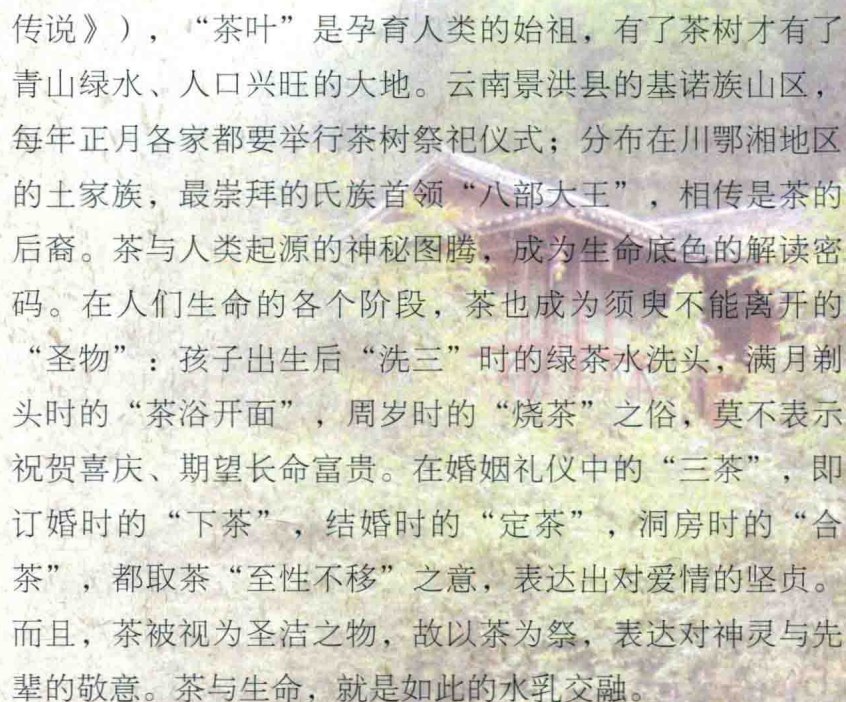 传说》），“茶叶”是孕育人类的始祖，有了茶树才有了
青山绿水、人口兴旺的大地。云南景洪县的基诺族山区，
每年正月各家都要举行茶树祭祀仪式；分布在川鄂湘地区
的土家族，最崇拜的氏族首领“八部大王”，相传是茶的
后裔。茶与人类起源的神秘图腾，成为生命底色的解读密
码。在人们生命的各个阶段，茶也成为须臾不能离开的
“圣物”：孩子出生后“洗三”时的绿茶水洗头，满月剃
头时的“茶浴开面”，周岁时的“烧茶”之俗，莫不表示
祝贺喜庆、期望长命富贵。在婚姻礼仪中的“三茶”，即
订婚时的“下茶”，结婚时的“定茶”，洞房时的“合
茶”，都取茶“至性不移”之意，表达出对爱情的坚贞。
而且，茶被视为圣洁之物，故以茶为祭，表达对神灵与先
辈的敬意。茶与生命，就是如此的水乳交融。